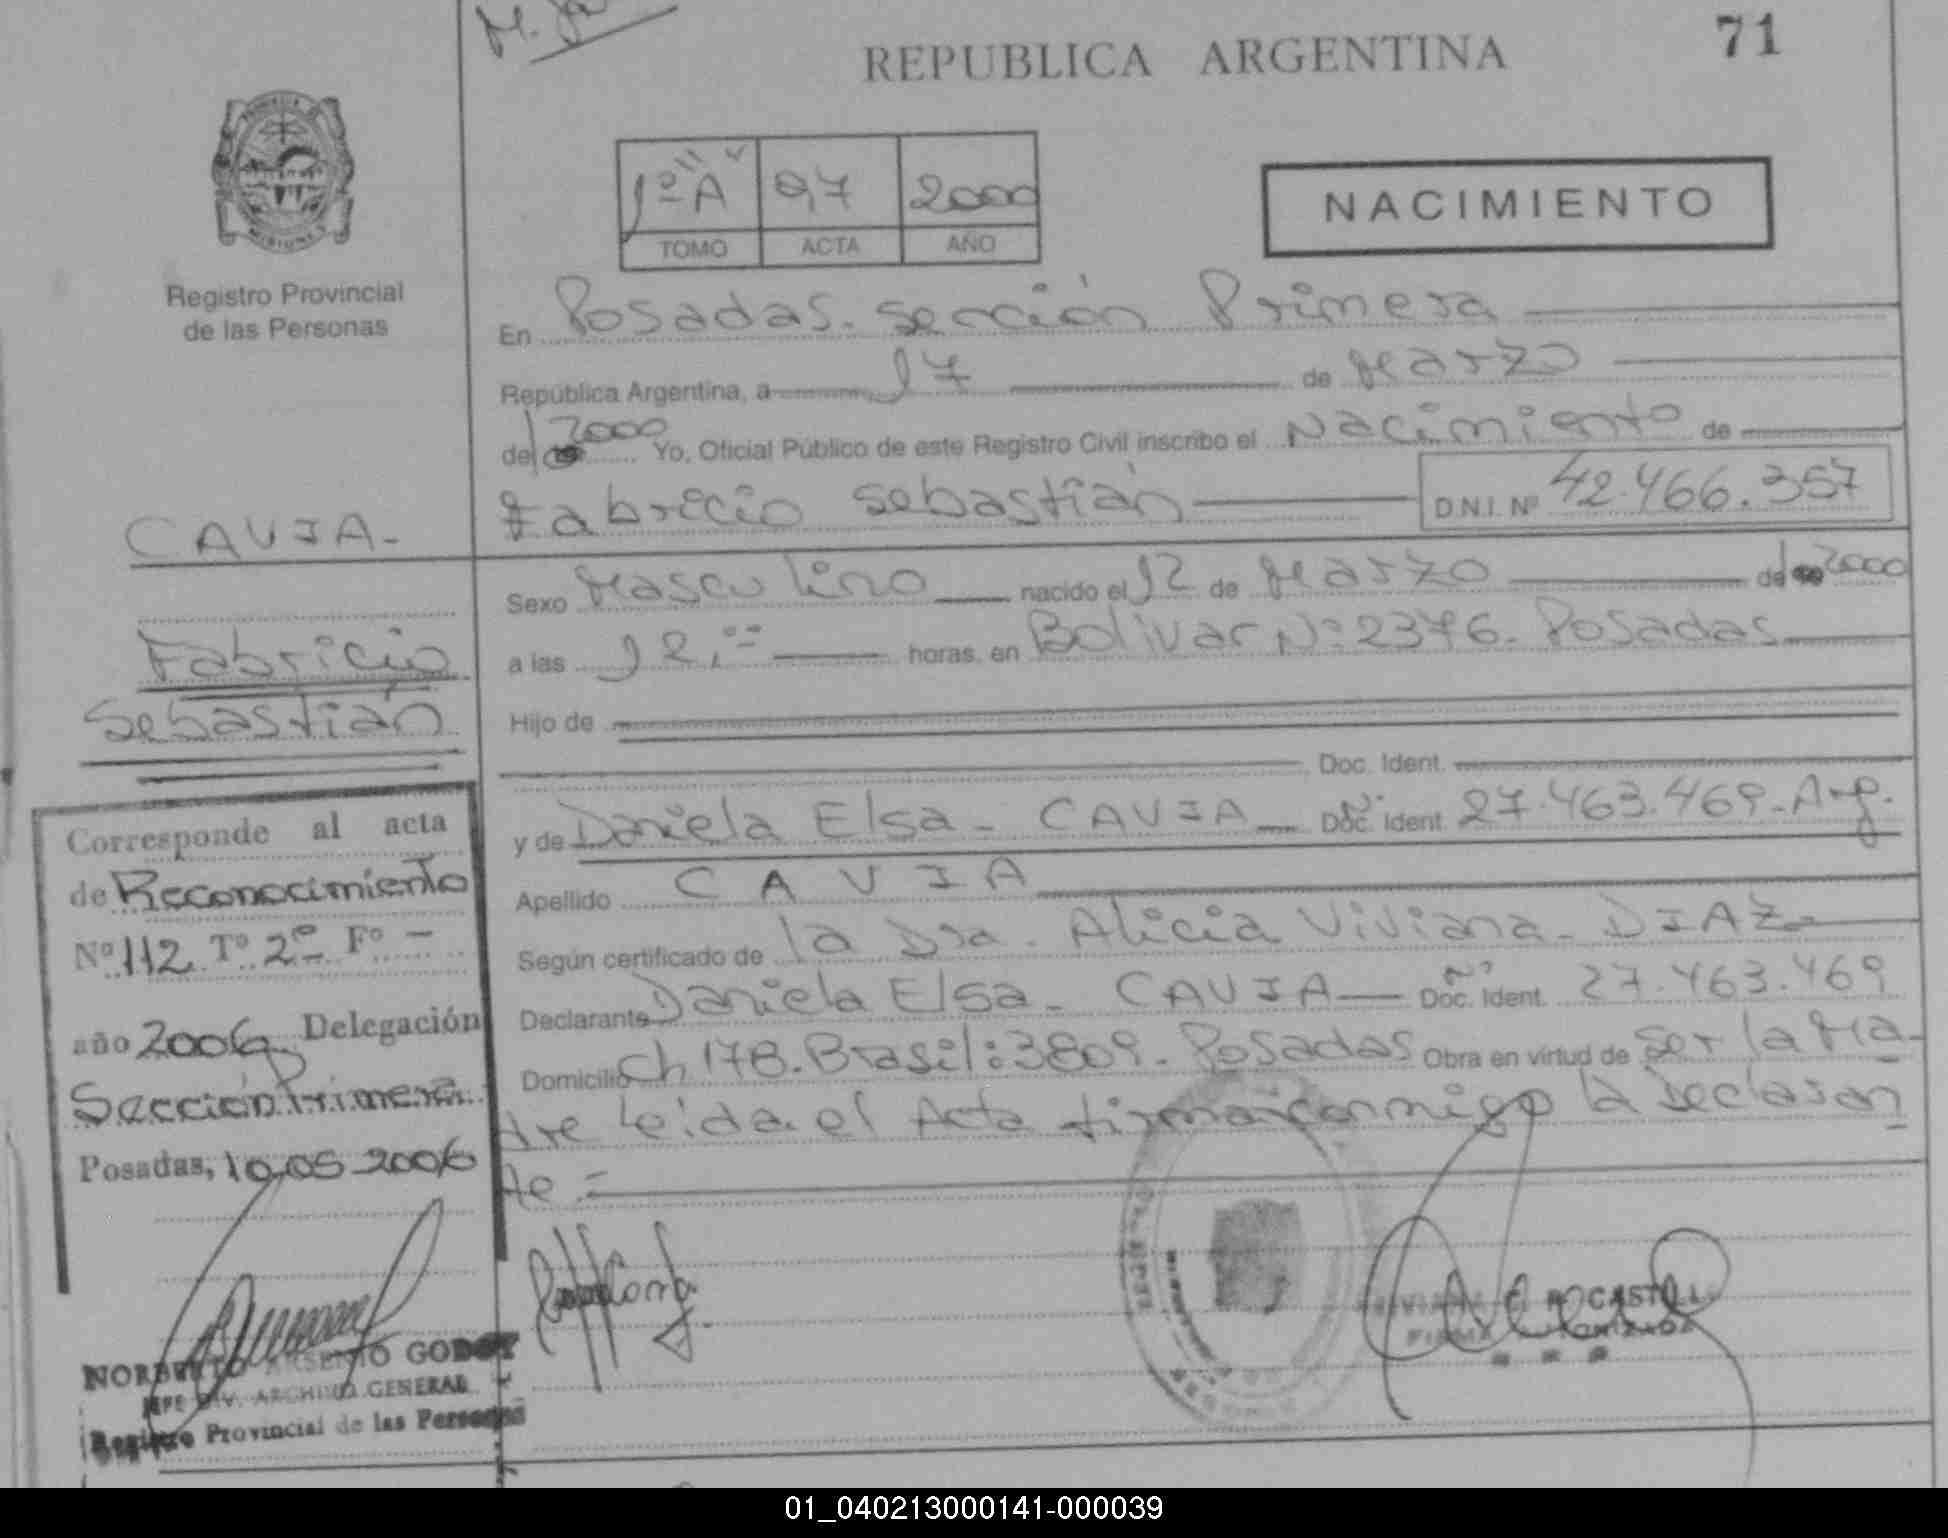 71
REPUBLICA ARGENTINA
Registro Provincial
de las Personas
1º A 97 2000
TOMO ACTA AÑO
NACIMIENTO
En Posadas. sección Primera
República Argentina, a 17 de Marzo
de 2000 Yo, Oficial Público de este Registro Civil inscribo el Nacimiento de
Fabricio Sebastián D.N.I. Nº 42.466.357
CAVIA-
Fabricio
Sebastián
Sexo Masculino nacido el 12 de Marzo de 2000
a las 12,== horas, en Bolivar Nº 2376. Posadas
Hijo de
Doc. Ident.
y de Daniela Elsa - CAVIA Doc. Ident. Nº 27.463.469-Arg.
Apellido CAVIA
Según certificado de la Dra. Alicia Viviana - DIAZ-
Declarante Daniela Elsa - CAVIA Doc. Ident. Nº 27.463.469
Domicilio Ch 178. Brasil: 3809. Posadas Obra en virtud de Ser la Ma-
dre Leida el Acta firma conmigo la Declaran
te =
Corresponde al acta
de Reconocimiento
Nº 112 Tº 2º Fº -
año 2006 Delegación
Sección Primera
Posadas, 10-05-2006
NORBERTO ARSENIO GODOY
JEFE DIV. ARCHIVO GENERAL
Registro Provincial de las Personas
FIRMA AUTORIZADA
01_040213000141-000039